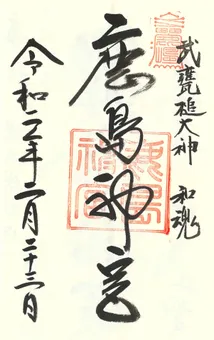 武甕槌大神 和魂
鹿島神宮
鹿島
神宮
令和二年二月二十三日